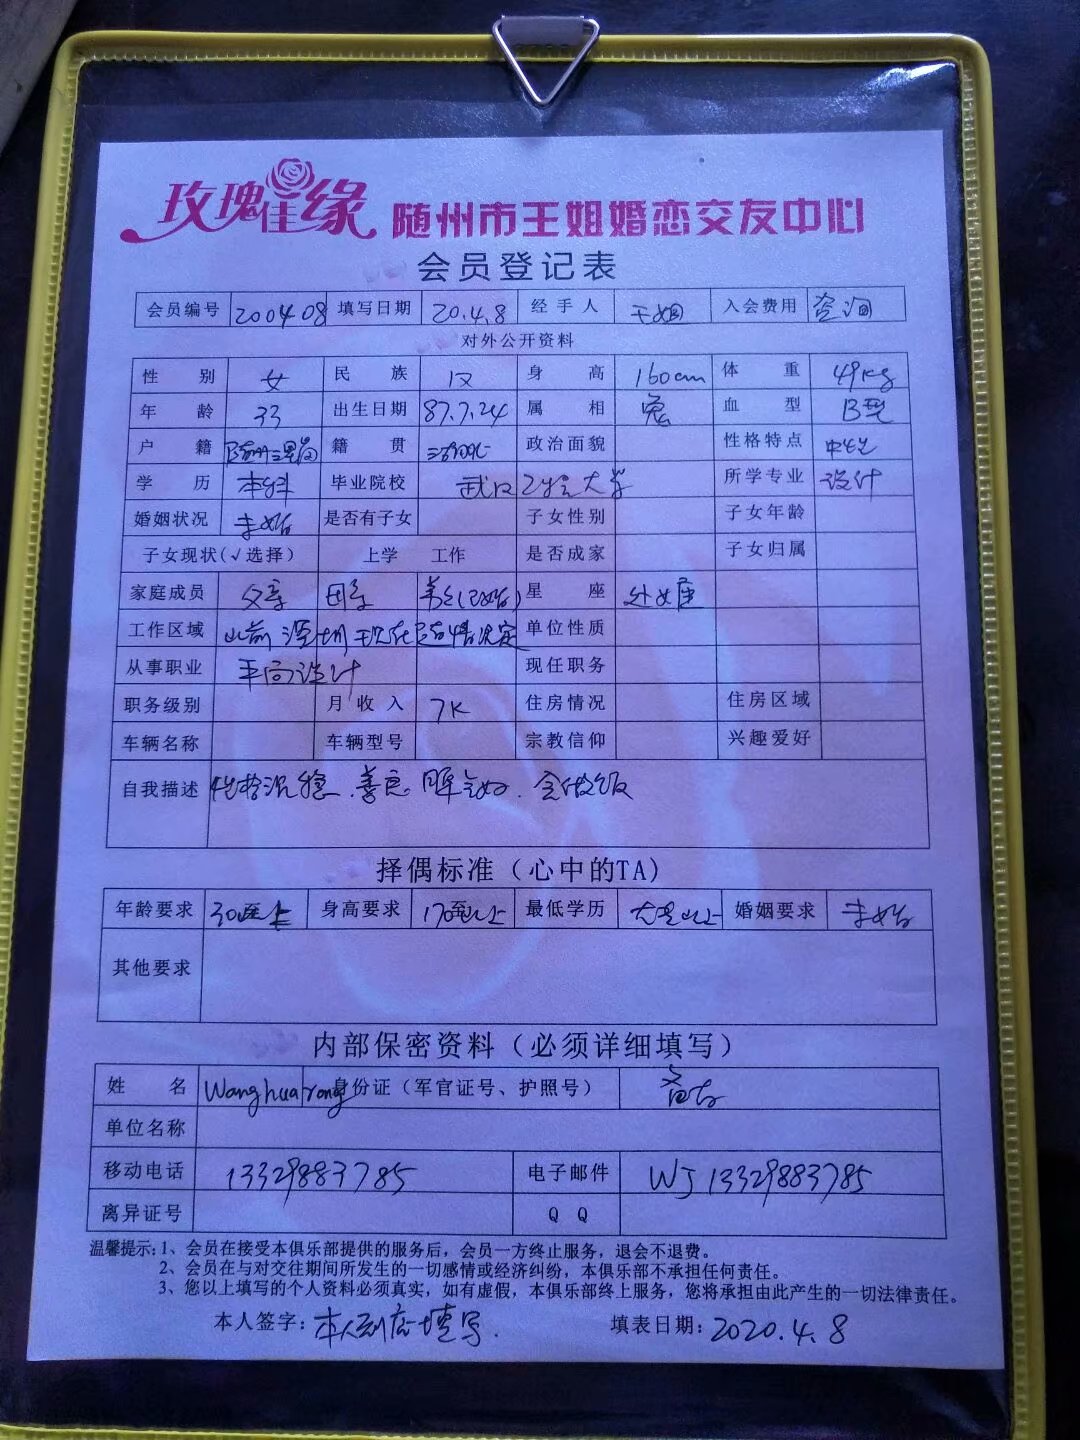 玫瑰佳缘 随州市王姐婚恋交友中心
会员登记表
会员编号 200408 填写日期 20.4.8 经手人 王姐 入会费用 咨询
对外公开资料
性别 女 民族 汉 身高 160cm 体重 49kg
年龄 33 出生日期 87.7.24 属相 兔 血型 B型
户籍 籍贯 政治面貌 性格特点 中性
学历 本科 毕业院校 武汉 大学 所学专业 设计
婚姻状况 未婚 是否有子女 子女性别 子女年龄
子女现状(√选择) 上学 工作 是否成家 子女归属
家庭成员 父亲 母亲 (已婚) 星座 处女座
工作区域 以前深圳现在 情况定 单位性质
从事职业 平面设计 现任职务
职务级别 月收入 7K 住房情况 住房区域
车辆名称 车辆型号 宗教信仰 兴趣爱好
自我描述 性格沉稳.善良.脾气好.会做饭
择偶标准（心中的TA）
年龄要求 30至 上 身高要求 170至以上 最低学历 大专以上 婚姻要求 未婚
其他要求
内部保密资料（必须详细填写）
姓名 Wanghuarong 身份证（军官证号、护照号） 备存
单位名称
移动电话 13329883785 电子邮件 WJ13329883785
离异证号 QQ
温馨提示:1、会员在接受本俱乐部提供的服务后，会员一方终止服务，退会不退费。
2、会员在与对交往期间所发生的一切感情或经济纠纷，本俱乐部不承担任何责任。
3、您以上填写的个人资料必须真实，如有虚假，本俱乐部终上服务，您将承担由此产生的一切法律责任。
本人签字:本人到店填写. 填表日期:2020.4.8